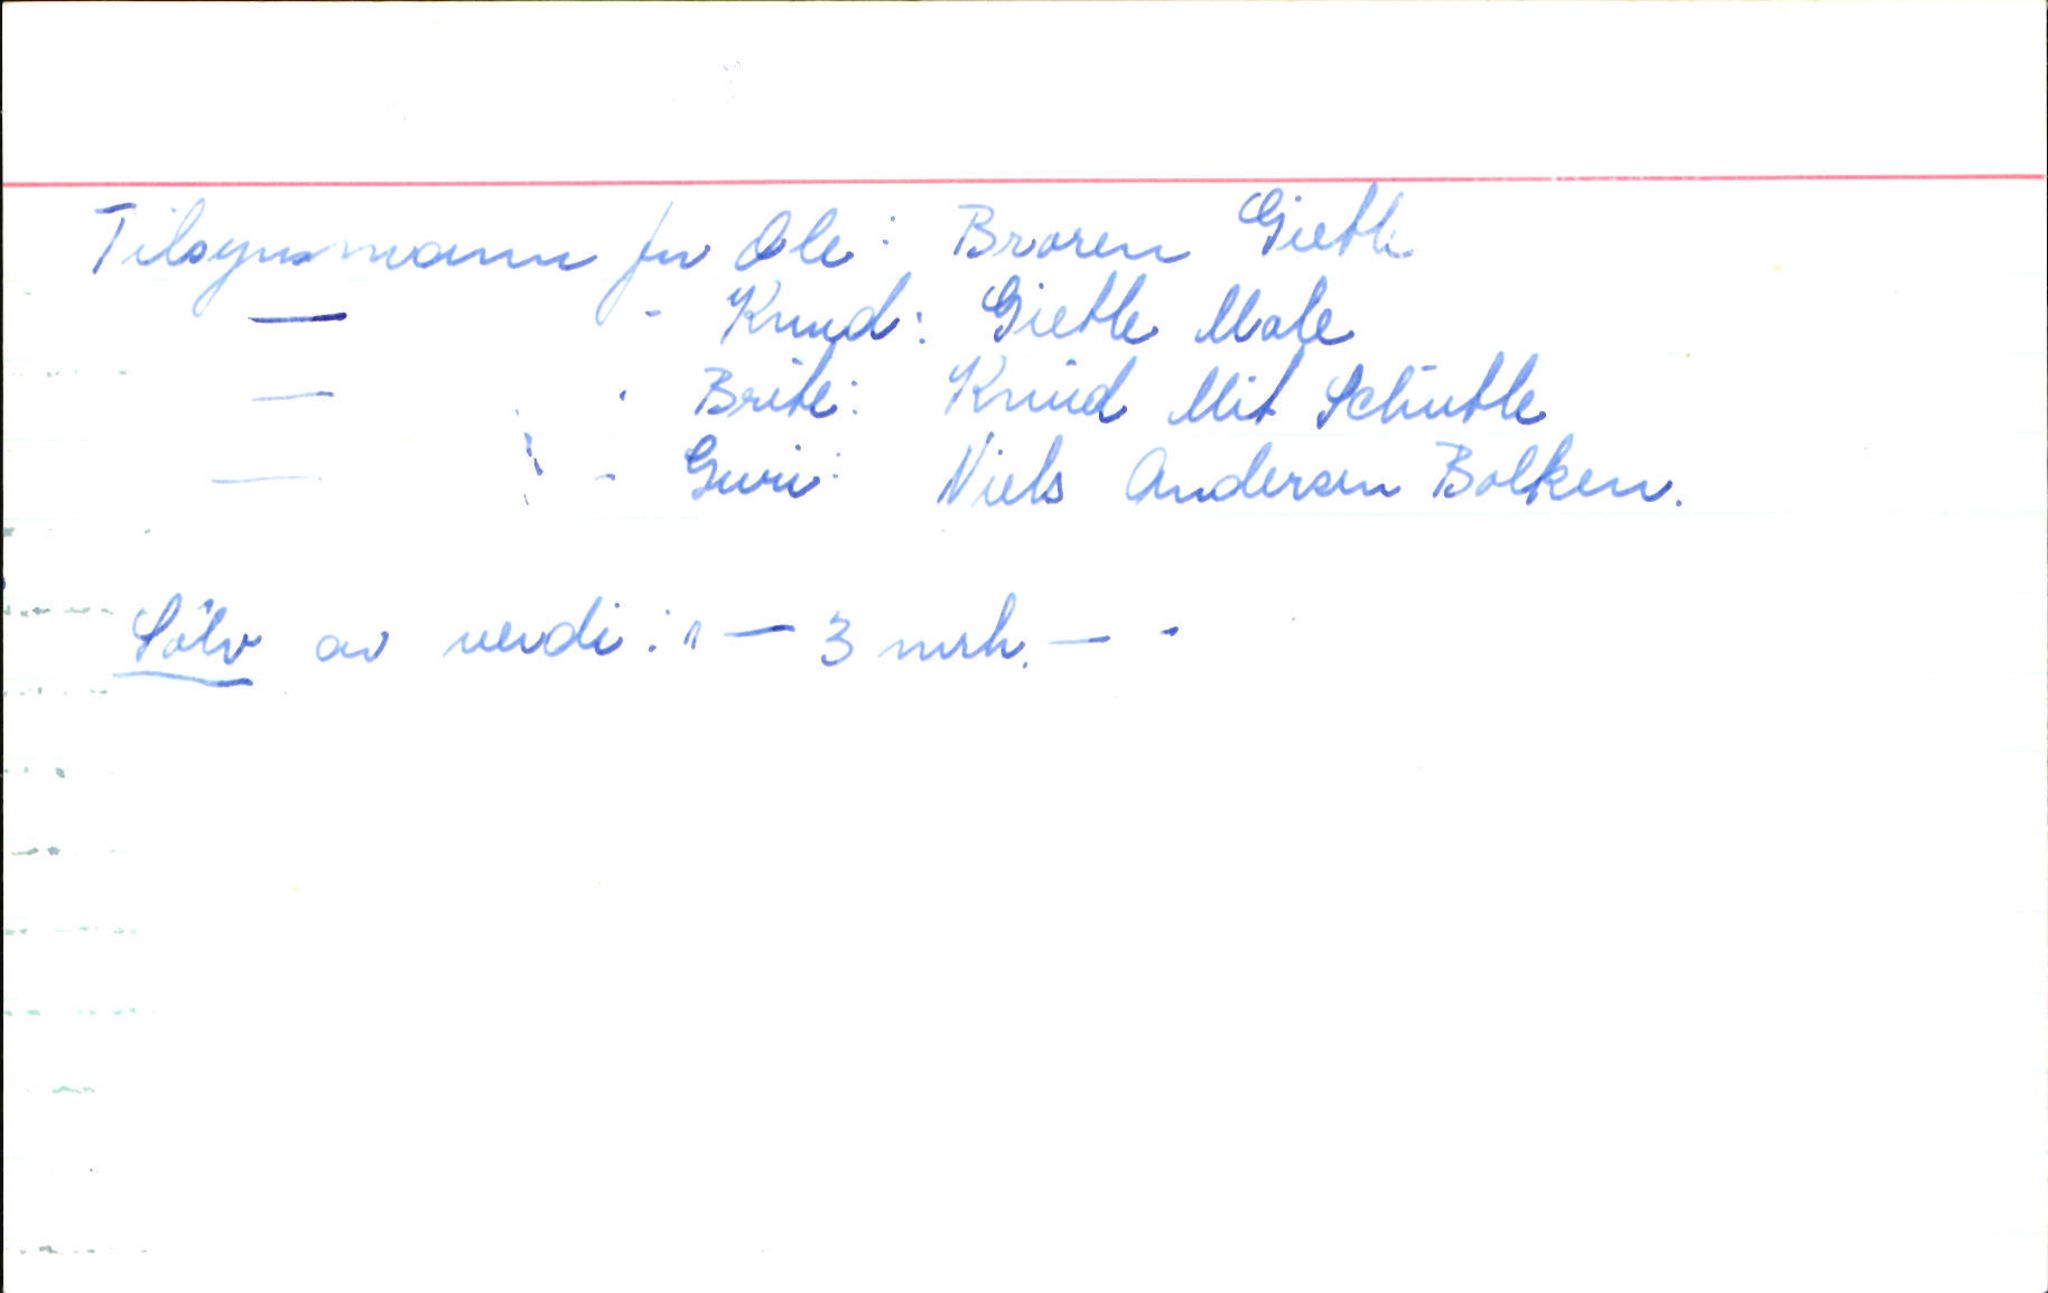 Tilsynsmann for Ole: Broren Gietle
— - Knud: Gietle Male
— - Brite: Knud Mit Schutle
— - Guri: Niels Andersen Bolken.
Sølv av verdi: " — 3 mrk. — -